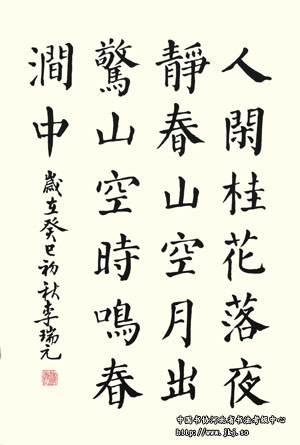 人閑桂花落夜
靜春山空月出
驚山空時鳴春
澗中
歲在癸巳初秋李瑞元
中国书协河北省书法考级中心
http://www.jkj.so